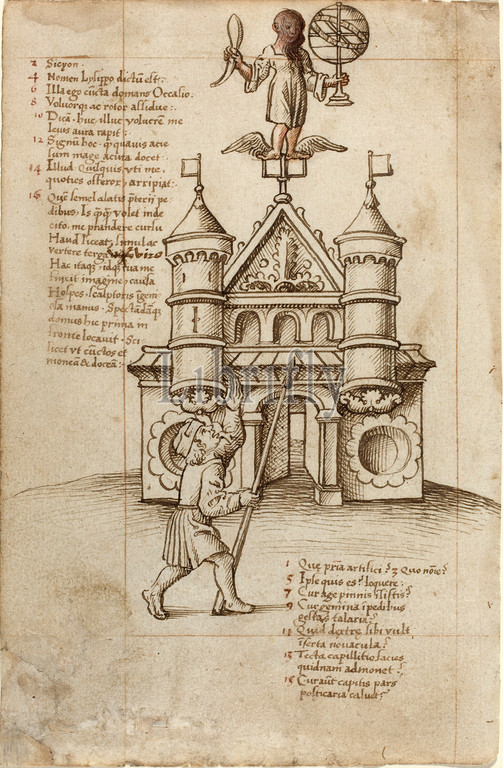 2 Sicyon.
4 Nomen Lysippo dictū est:
6 Illa ego cūcta domans Occasio:
8 Voluorq; ac rotor assidue:.
10 Dicā. huc illuc volucrē me
leuis aura rapit:
12 Signū hoc. q̄ quauis acie
sum mage acuta docet:
14 Illud. Cuiquis vti me.
quoties offeror arripiat:
16 Quē semel alatis pterij pe
dibus. Is q̄q; volet inde
cito. me prandere cursu
Haud liceat: simul ac
vertere terga
Hac itaq; idq; tua me
finxit imagine causa
Hospes. sculptoris igem
ola manus. Spectādāq;
domus hic prima in
fronte locauit. Sci
licet vt cūctos et
moneā & doceā:
Librifly
1 Quę pr̄ia artifici? 2 Quo noīe?
5 Ipse quis es? loquere:
7 Cur age pinnis īsistis?
9 Cur gemina ī pedibus
gestas talaria?
11 Quid dextrę sibi vult
īserta nouacula?
13 Tecta capillitio facies
quidnam admonet?
15 Cur aūt capitis pars
posticaria caluet?